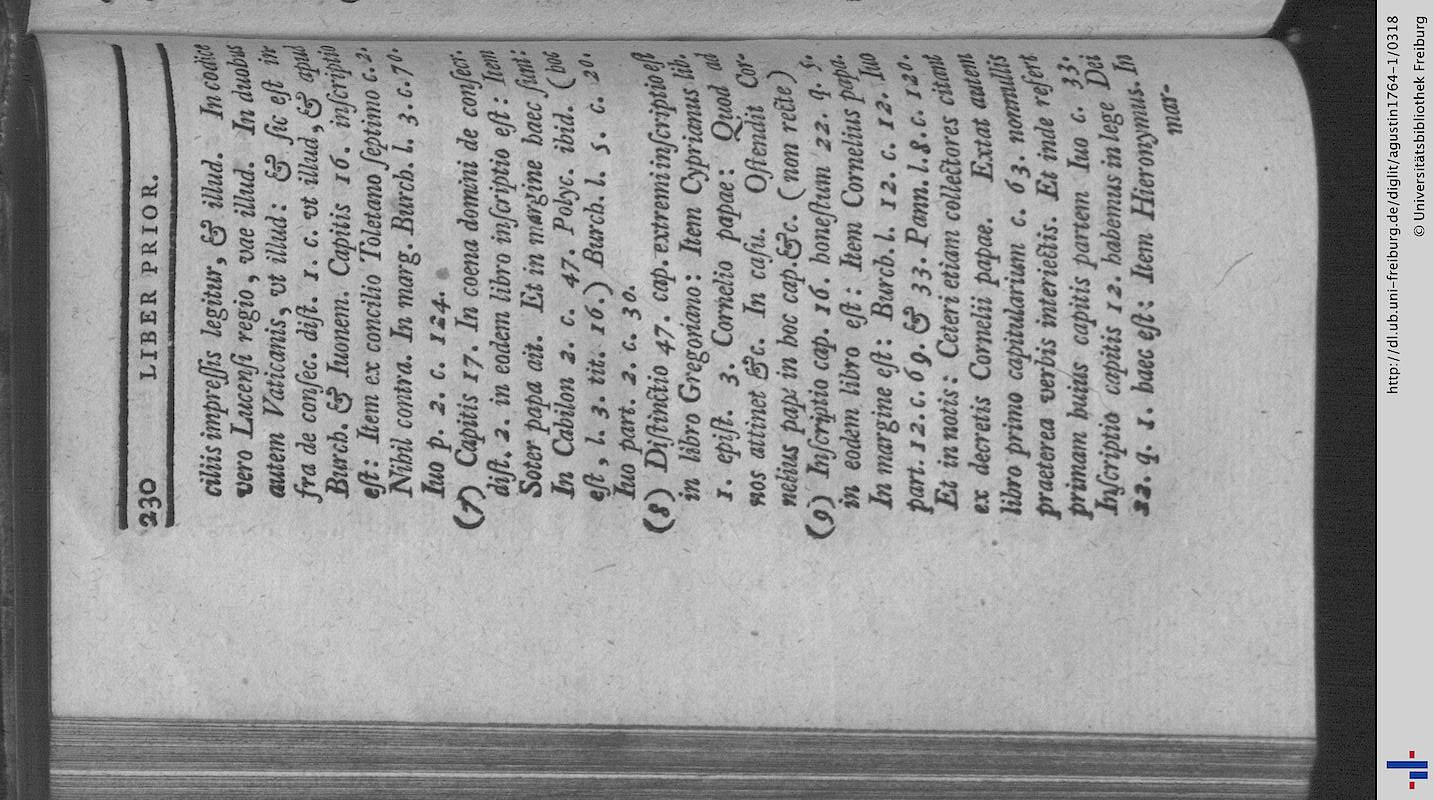 230 LIBER PRIOR.
ciliis impreſſis legitur, & illud. In codice
vero Lucenſi regio, vae illud. In duobus
autem Vaticanis, vt illud: & ſic eſt in-
fra de conſec. diſt. 1. c. vt illud, & apud
Burch. & Iuonem. Capitis 16. inſcriptio
eſt: Item ex concilio Toletano ſeptimo c. 2.
Nihil contra. In marg. Burch. l. 3. c. 70.
Iuo p. 2. c. 124.
(7) Capitis 17. In coena domini de conſecr.
diſt. 2. in eodem libro inſcriptio eſt: Item
Soter papa ait. Et in margine haec ſunt:
In Cabilon 2. c. 47. Polyc. ibid. (hoc
eſt, l. 3. tit. 16.) Burch. l. 5. c. 20.
Iuo part. 2. c. 30.
(8) Diſtinctio 47. cap. extremi inſcriptio eſt
in libro Gregoriano: Item Cyprianus lib.
1. epiſt. 3. Cornelio papae: Quod ad
nos attinet &c. In caſu. Oſtendit Cor-
nelius papę in hoc cap. &c. (non recte)
(9) Inſcriptio cap. 16. honeſtum 22. q. 5.
in eodem libro eſt: Item Cornelius papa.
In margine eſt: Burch. l. 12. c. 12. Iuo
part. 12. c. 69. & 33. Pann. l. 8. c. 120.
Et in notis: Ceteri etiam collectores citant
ex decretis Cornelii papae. Extat autem
libro primo capitularium c. 63. nonnullis
praeterea verbis interiectis. Et inde refert
primam huius capitis partem Iuo c. 33.
Inſcriptio capitis 12. habemus in lege Dei
22. q. 1. haec eſt: Item Hieronymus. In
mar-
http://dl.ub.uni-freiburg.de/diglit/agustin1764-1/0318
© Universitätsbibliothek Freiburg